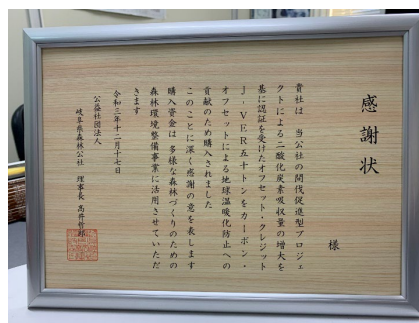 感謝状
様
貴社は 当公社の間伐促進型プロジェ
クトによる二酸化炭素吸収量の増大を
基に認証を受けたオフセット・クレジット
J‐VER五十トンをカーボン・
オフセットによる地球温暖化防止への
貢献のため購入されました
このことに深く感謝の意を表します
購入資金は多様な森林づくりのための
森林環境整備事業に活用させていただ
きます
令和三年十二月十七日
公益社団法人
岐阜県森林公社 理事長 高井哲郎